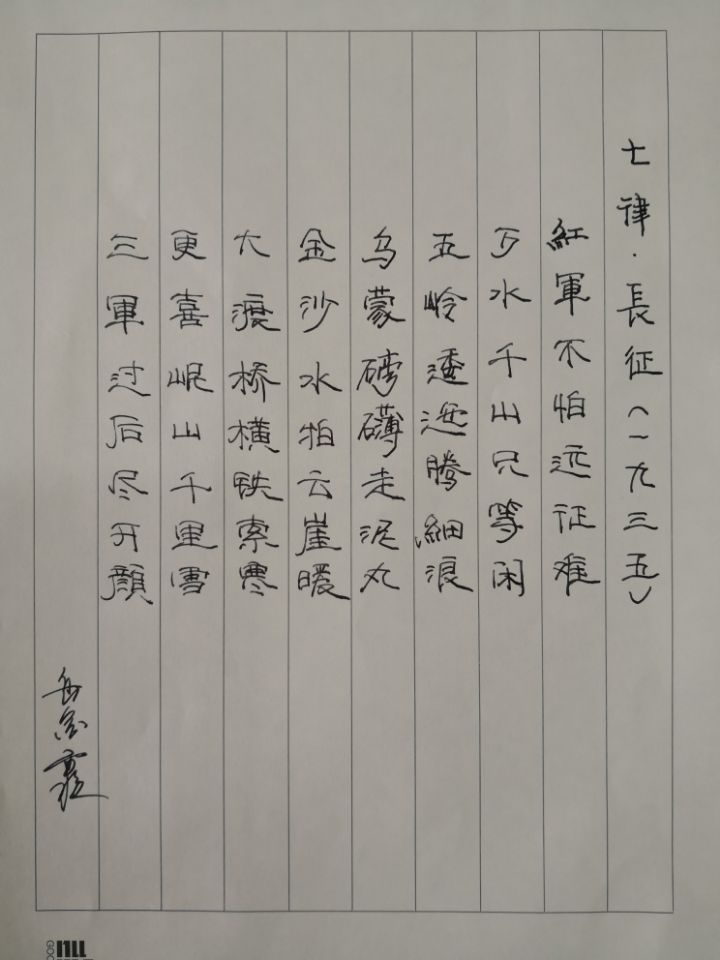 七律·長征(一九三五)
紅軍不怕远征难
万水千山只等闲
五岭逶迤腾細浪
乌蒙磅礴走泥丸
金沙水拍云崖暖
大渡桥横铁索寒
更喜岷山千里雪
三軍过后尽开顔